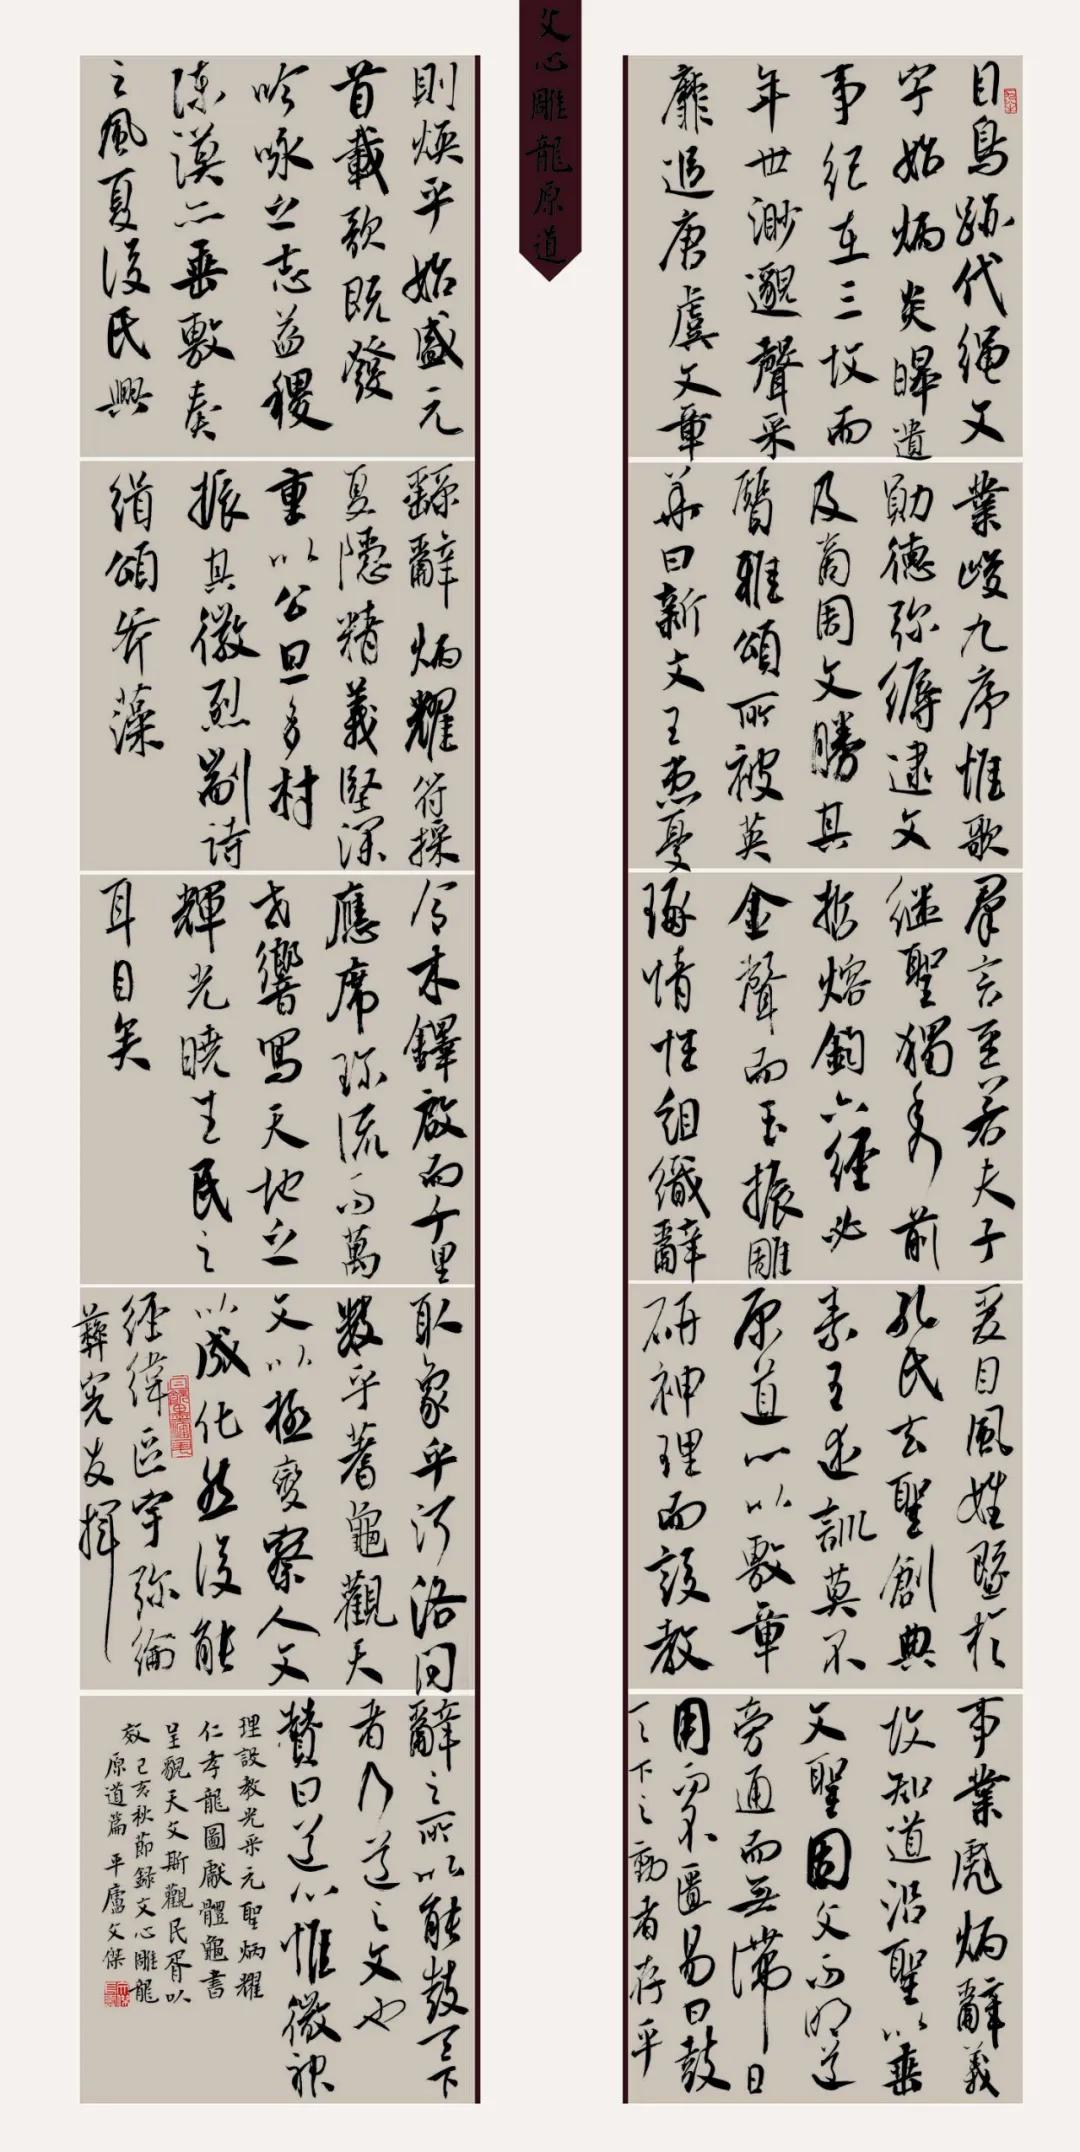 文心雕龍原道
自鳥跡代繩文
字始炳炎皞遺
事紀在三墳而
年世渺邈聲采
靡追唐虞文章
則煥乎始盛元
首載歌既發
吟詠之志益稷
陳謨亦垂敷奏
之風夏後氏興
業峻九序惟歌
勛德弥縟逮文
及商周文勝其
質雅頌所被英
華日新文王患憂
繇辭炳耀符採
复隱精義堅深
重以公旦多材
振其徽烈剬詩
緝頌斧藻
羣言至若夫子
继聖獨秀前
哲熔鈞六經必
金聲而玉振雕
琢情性組織辭
令木鐸啟而千里
應席珎流而萬
世響寫天地之
輝光曉生民之
耳目矣
爰自風姓暨於
孔氏玄聖創典
素王述訓莫不
原道心以敷章
研神理而設教
取象乎河洛問
數乎蓍龜觀天
文以極變察人文
以成化然後能
經緯區宇弥綸
彝憲发揮
事業彪炳辭義
故知道沿聖以垂
文聖因文而明道
旁通而無滯日
用而不匱易曰鼓
天下之動者存乎
辭之所以能鼓天下
者乃道之文也
贊曰道心惟微神
理設教光采元聖炳耀
仁孝龍圖獻體龜書
呈貌天文斯觀民胥以
效己亥秋節録文心雕龍
原道篇 平廬文傑